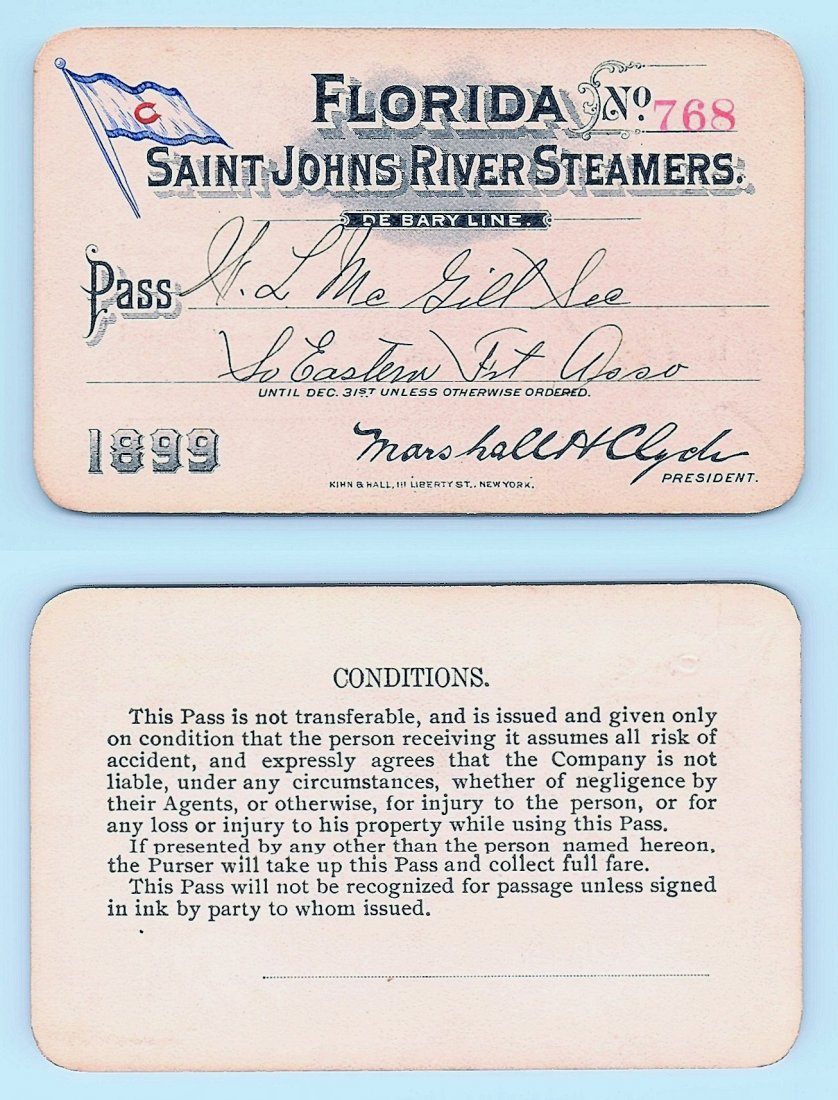 C
FLORIDA No. 768
SAINT JOHNS RIVER STEAMERS.
DE BARY LINE.
Pass W. L. Mc Gill Sec
So Eastern Frt Asso
UNTIL DEC. 31ST UNLESS OTHERWISE ORDERED.
1899
Marshall H Clyde
PRESIDENT.
KIHN & HALL, 111 LIBERTY ST., NEW YORK.
CONDITIONS.
This Pass is not transferable, and is issued and given only
on condition that the person receiving it assumes all risk of
accident, and expressly agrees that the Company is not
liable, under any circumstances, whether of negligence by
their Agents, or otherwise, for injury to the person, or for
any loss or injury to his property while using this Pass.
If presented by any other than the person named hereon,
the Purser will take up this Pass and collect full fare.
This Pass will not be recognized for passage unless signed
in ink by party to whom issued.